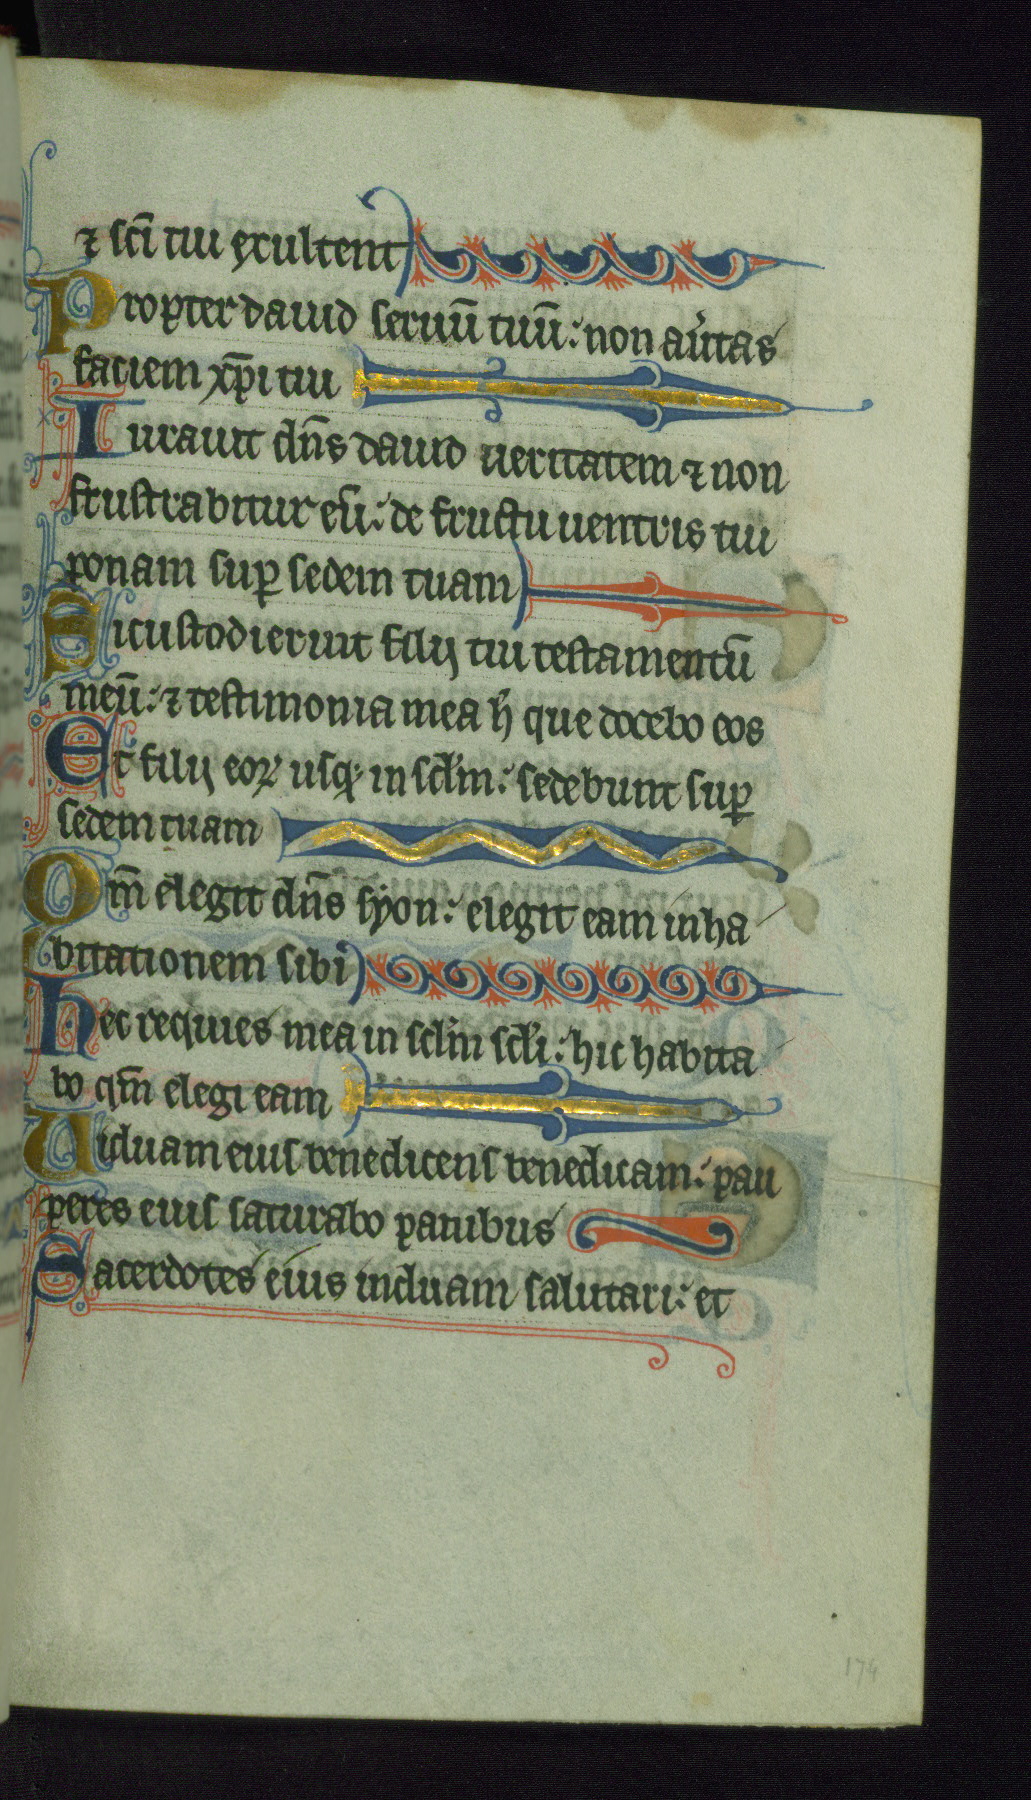 ⁊ sc̄i tui exultent
Propter dauid seruū tuū: non au̾tas
faciem xp̄i tui
Iurauit dn̄s dauid ueritatem ⁊ non
frustrabitur eū: de fructu uentris tui
ponam suꝑ sedem tuam
Si custodierint filij tui testamentū
meū: ⁊ testimonia mea h̄ que docebo eos
Et filij eoꝝ usqꝫ in sclm̄: sedebunt suꝑ
sedem tuam
Qm̄ elegit dn̄s syon: elegit eam in ha
bitationem sibi
Hec requies mea in sclm̄ sclī: hic habita
bo qm̄ elegi eam
Uiduam eius benedicens benedicam: pau
peres eius saturabo panibus
Sacerdotes eius induam salutari: et
174